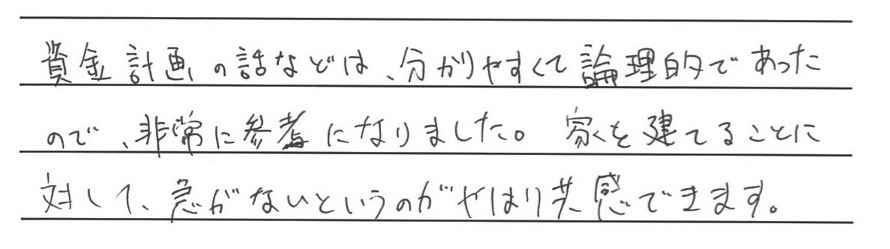 資金計画の話などは、分かりやすくて論理的であった
ので、非常に参考になりました。 家を建てることに
対して、急がないというのがやはり共感できます。